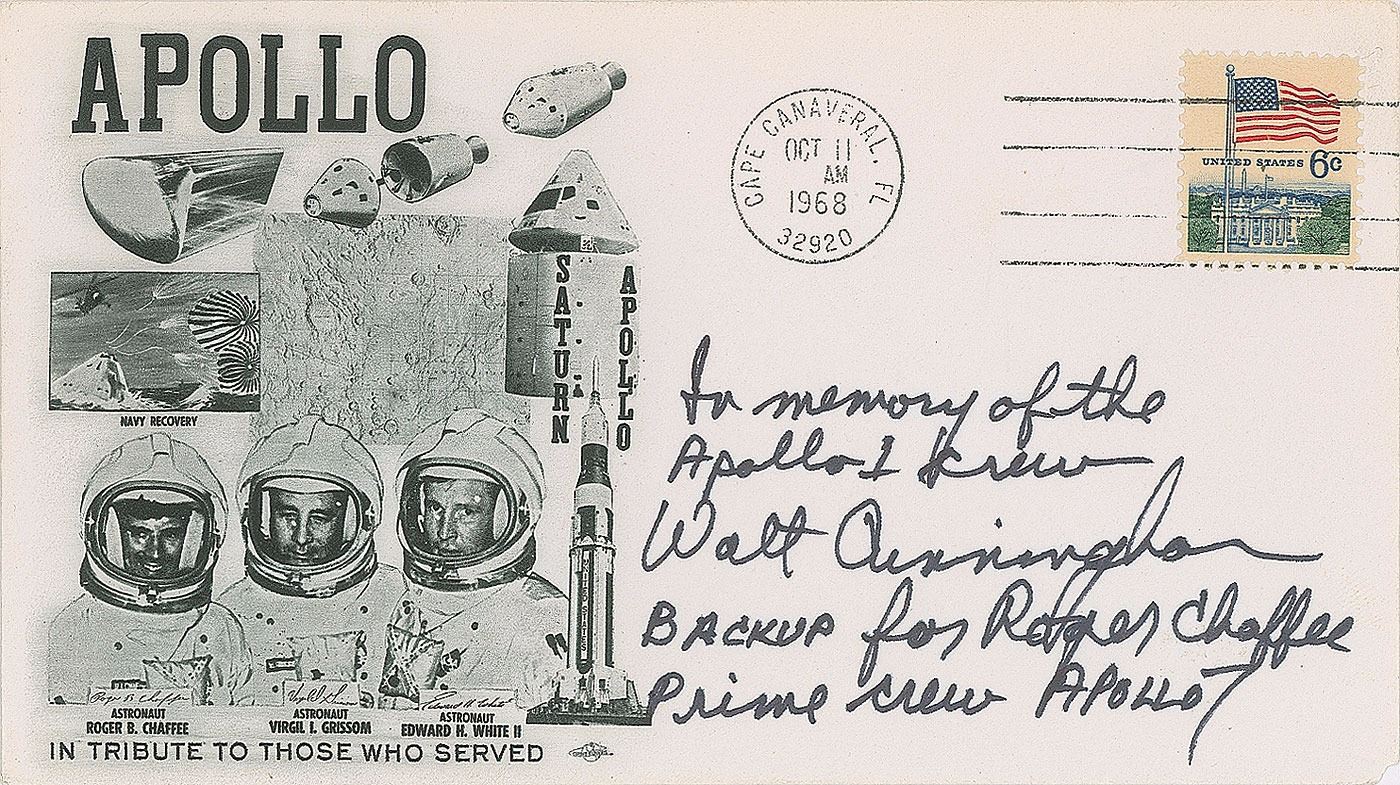 APOLLO
SATURN
APOLLO
NAVY RECOVERY
UNITED STATES
ASTRONAUT
ROGER B. CHAFFEE
ASTRONAUT
VIRGIL I. GRISSOM
ASTRONAUT
EDWARD H. WHITE II
IN TRIBUTE TO THOSE WHO SERVED
CAPE CANAVERAL, FL
OCT 11
AM
1968
32920
UNITED STATES 6c
In memory of the
Apollo 1 crew
Walt Cunningham
BACKUP for Roger Chaffee
Prime crew APOLLO 7